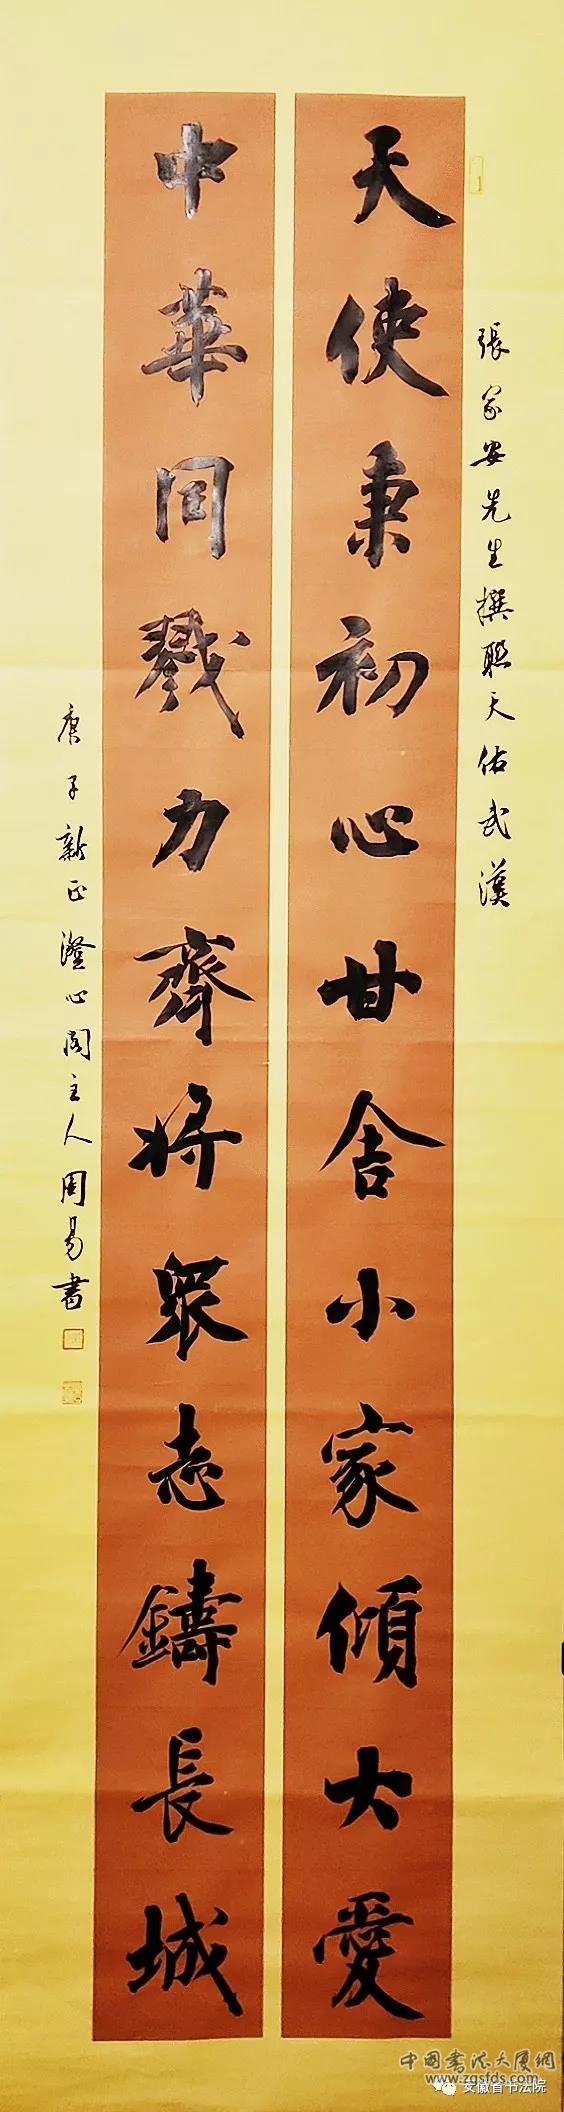 張家安先生撰聯天佑武漢
天使秉初心甘舍小家傾大愛
中華同戮力齊將眾志鑄長城
庚子新正澄心閣主人周易書
中國書法大廈網
www.zgsfds.com
安徽省书法院